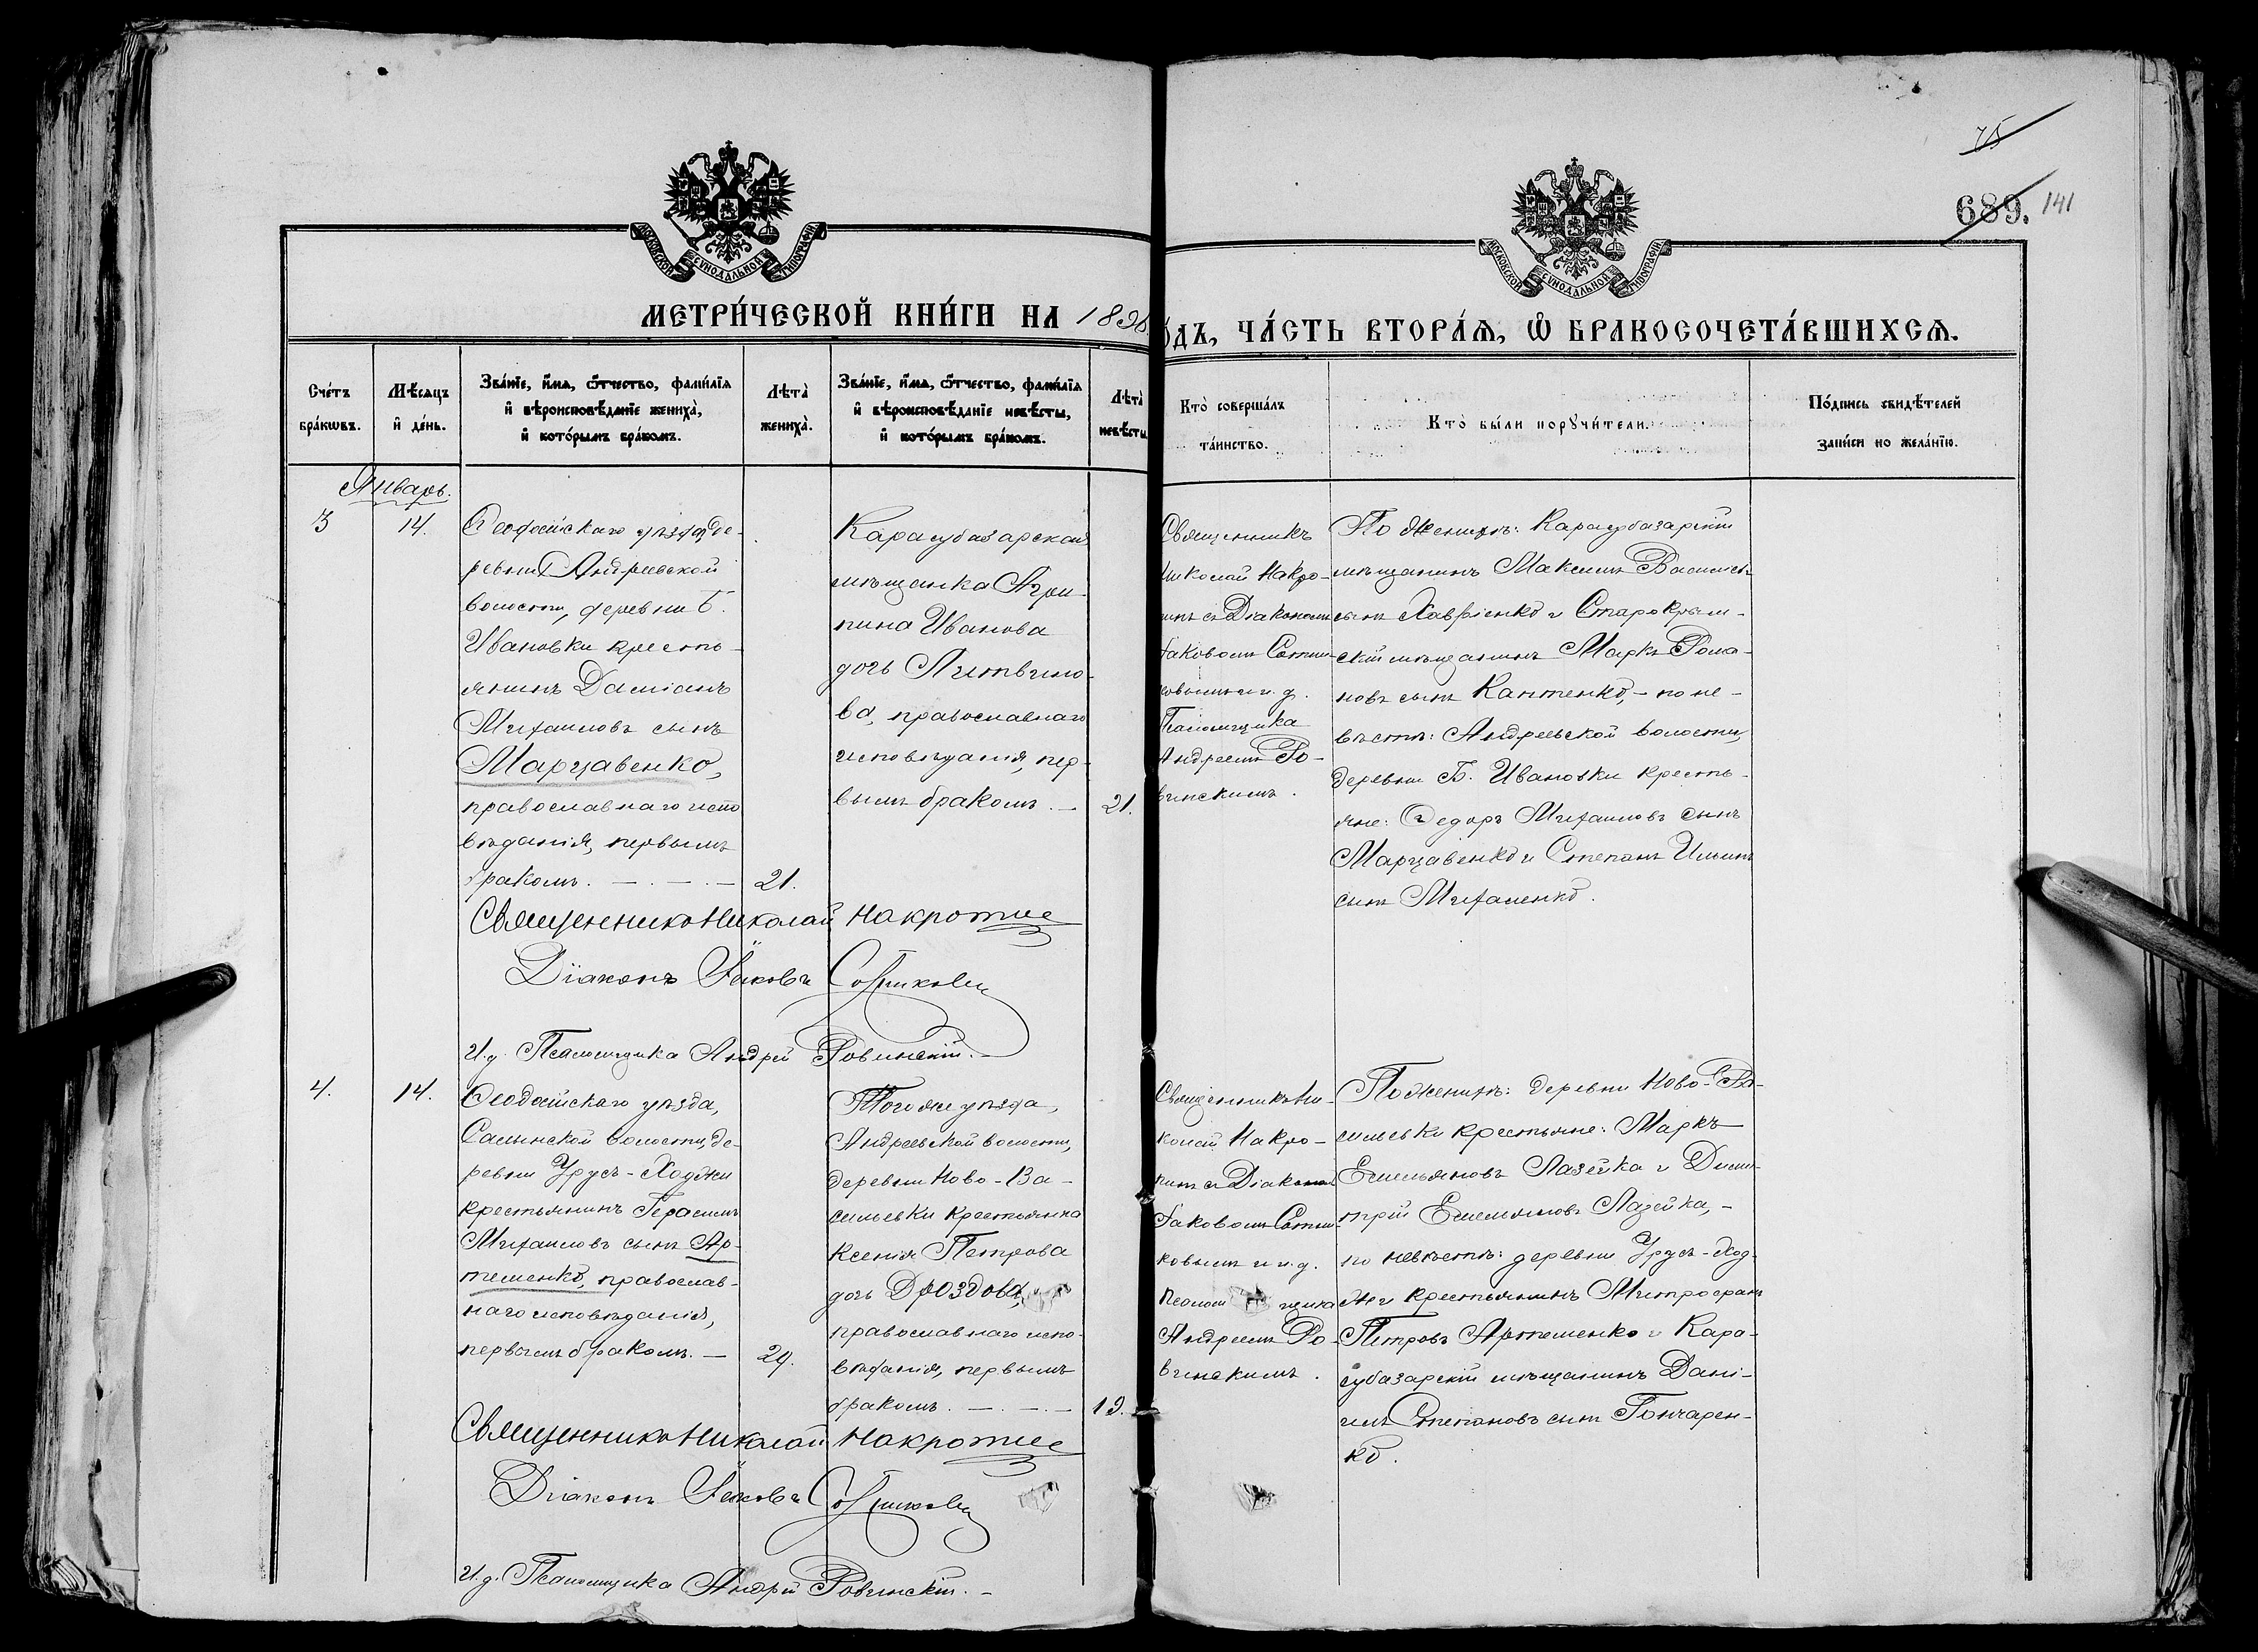 75
689. 141
МОСКОВСКОЙ СѴНОДАЛЬНОЙ ТИПОГРАФІИ
МОСКОВСКОЙ СѴНОДАЛЬНОЙ ТИПОГРАФІИ
МЕТРИ́ЧЕСКОЙ КНИ́ГИ НА 1898
ОДЪ, ЧА́СТЬ ВТОРА́Ѧ, Ѿ БРАКОСОЧЕТА́ВШИХСѦ.
Сче́тъ
бра́кѡвъ.
Мѣ́сѧцъ
и҆ де́нь.
Зва́нїе, и҆́мѧ, ѻ҆́тчество, фами́лїѧ
и҆ вѣроисповѣ́данїе жениха̀,
и҆ кото́рымъ бра́комъ.
Лѣта̀
жениха̀.
Зва́нїе, и҆́мѧ, ѻ҆́тчество, фами́лїѧ
и҆ вѣроисповѣ́данїе невѣ́сты,
и҆ кото́рымъ бра́комъ.
Лѣта̀
невѣ́сты
Кто̀ соверша́лъ
та́инство.
Кто̀ бы́ли порꙋчи́тели.
По́дпись свидѣ́телей
за́писи по жела́нїю.
Январь.
3
14.
Ѳеодосійскаго уѣзда, де-
ревни Андреевской
волости, деревни Б.
Ивановки кресть-
янинъ Даміанъ
Михаиловъ сынъ
Марцавенко,
православнаго испо
вѣданія, первымъ
бракомъ. — . — . —
21.
Карасубазарская
мѣщанка Агри-
пина Иванова
дочь Литвино-
ва, православнаго
исповѣданія, пер-
вымъ бракомъ. —
21.
Священникъ
Николай Накро-
пинъ съ Діакономъ
Іаковомъ Сотни-
ковымъ и и. д.
Псаломщика
Андреемъ Ро-
винскимъ.
По женихѣ: Карасубазарскій
мѣщанинъ Максимъ Васильевъ
сынъ Хавріенко и Старокрым-
скій мѣщанинъ Маркъ Рома-
новъ сынъ Каптенко, – по не-
вѣстѣ: Андреевской волости,
деревни Б. Ивановки кресть-
яне: Ѳедоръ Михаиловъ сынъ
Марцавенко и Степанъ Ильинъ
сынъ Михаленко.
Священникъ Николай Накропинъ
Діаконъ Іаковъ Сотниковъ
И. д. Псаломщика Андрей Ровинскій. –
4.
14.
Ѳеодосійскаго уѣзда,
Салынской волости, де-
ревни Урусъ-Ходжи
крестьянинъ Герасимъ
Михаиловъ сынъ Ар-
тешенко, православ-
наго исповѣданія,
первымъ бракомъ. —
29.
Того же уѣзда,
Андреевской волости,
деревни Ново-Ва-
сильевки крестьянка
Ксенія Петрова
дочь Дроздова,
православнаго испо-
вѣданія, первымъ
бракомъ. — . — . —
19.
Священникъ Ни-
колай Накро-
пинъ съ Діаконом
Іаковомъ Сотни-
ковымъ и и. д.
Псалом щика
Андреемъ Ро-
винскимъ.
По женихѣ: деревни Ново-Ва-
сильевки крестьяне: Маркъ
Емельяновъ Лазейка и Дими-
трій Емельяновъ Лазейка, –
по невѣстѣ: деревни Урусъ-Ход-
жи крестьянинъ Митрофанъ
Петровъ Артешенко и Кара-
субазарскій мѣщанинъ Дані-
илъ Степановъ сынъ Гончарен-
ко.
Священникъ Николай Накропинъ
Діаконъ Іаковъ Сотниковъ
И. д. Псаломщика Андрей Ровинскій. –